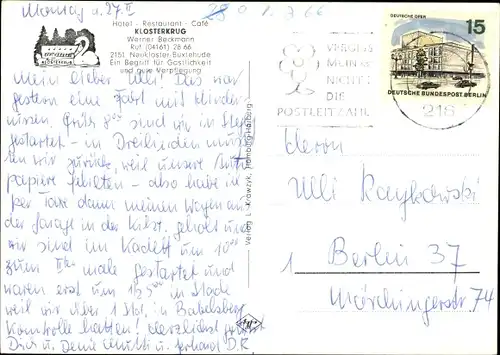 Montag d. 27. II
Hotel - Restaurant - Café
KLOSTERKRUG
Werner Beckmann
Ruf (04161) 28 66
2151 Neukloster-Buxtehude
Ein Begriff für Gastlichkeit
und gute Verpflegung
Mein lieber Uli! Das war
gestern eine Fahrt mit Hinder-
nissen. Früh 8 sind wir in
gestartet - in Dreilinden muß-
ten wir zurück, weil unsere Auto
papiere fehlten - also habe ich
per Taxe dann meinen Wagen an
der Garage in der geholt und
wir sind im Kadett um 10
zum II male gestartet und
waren erst um in Stade
weil wir über 1 Std. in Babelsberg
Kontrolle hatten! Herzlichst grüßt
Dich u. Deine Mutti u. Gerhard D.R.
Verlag L. Krawzyk, Hamburg-Harburg
VERGISS
MEIN
NICHT
DIE
POSTLEITZAHL
216
DEUTSCHE OPER
15
DEUTSCHE BUNDESPOST BERLIN
Herrn
Ulli Kaykowski
1 Berlin 37
Mörchingerstr. 74